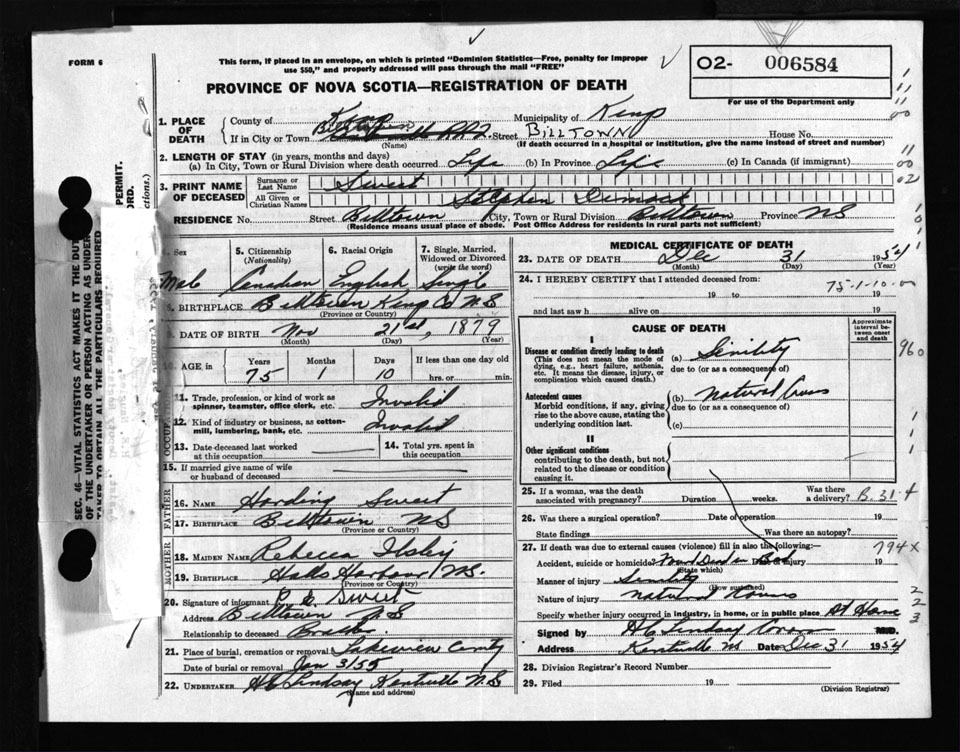 FORM 6
This form, if placed in an envelope, on which is printed "Dominion Statistics—Free, penalty for improper
use $50," and properly addressed will pass through the mail "FREE"
02- 006584
For use of the Department only
PROVINCE OF NOVA SCOTIA—REGISTRATION OF DEATH
1. PLACE OF DEATH
County of Kings Municipality of Kings
If in City or Town Billtown Street BILLTOWN House No.
(Name) (If death occurred in a hospital or institution, give the name instead of street and number)
2. LENGTH OF STAY (in years, months and days)
(a) In City, Town or Rural Division where death occurred Life (b) In Province Life (c) In Canada (if immigrant)
3. PRINT NAME OF DECEASED
Surname or Last Name Sweet
All Given or Christian Names Stephen Dimock
RESIDENCE No. Street Billtown City, Town or Rural Division Billtown Province NS
(Residence means usual place of abode. Post Office Address for residents in rural parts not sufficient)
Sex Male
5. Citizenship (Nationality) Canadian
6. Racial Origin English
7. Single, Married, Widowed or Divorced (write the word) Single
8. BIRTHPLACE Billtown Kings Co N.S
(Province or Country)
9. DATE OF BIRTH Nov 21st, 1879
(Month) (Day) (Year)
AGE in Years 75 Months 1 Days 10 If less than one day old hrs. or min.
11. Trade, profession, or kind of work as spinner, teamster, office clerk, etc. Invalid
12. Kind of industry or business, as cotton-mill, lumbering, bank, etc. Invalid
13. Date deceased last worked at this occupation
14. Total yrs. spent in this occupation
15. If married give name of wife or husband of deceased
FATHER
16. NAME Harding Sweet
17. BIRTHPLACE Billtown NS
(Province or Country)
MOTHER
18. MAIDEN NAME Rebecca Ilsley
19. BIRTHPLACE Halls Harbour NS.
(Province or Country)
20. Signature of informant Sweet
Address Billtown N.S
Relationship to deceased Brother
21. Place of burial, cremation or removal Lakeview
Date of burial or removal Jan 3/55
22. UNDERTAKER H C Lindsay Kentville N.S
(Name and address)
MEDICAL CERTIFICATE OF DEATH
23. DATE OF DEATH Dec 31 1954
(Month) (Day) (Year)
24. I HEREBY CERTIFY that I attended deceased from:
75-1-10-00
19 to 19
and last saw h alive on 19
CAUSE OF DEATH
Approximate interval between onset and death
I
Disease or condition directly leading to death (a) Senility
(This does not mean the mode of dying, e.g., heart failure, asthenia, etc. It means the disease, injury, or complication which caused death.)
due to (or as a consequence of)
Antecedent causes (b) Natural Causes
Morbid conditions, if any, giving rise to the above cause, stating the underlying condition last.
due to (or as a consequence of)
(c)
II
Other significant conditions
contributing to the death, but not related to the disease or condition causing it.
25. If a woman, was the death associated with pregnancy? Duration weeks. Was there a delivery?
26. Was there a surgical operation? Date of operation 19
State findings Was there an autopsy?
27. If death was due to external causes (violence) fill in also the following:— 794X
Accident, suicide or homicide? Date of injury 19
(State which)
Manner of injury Senility
(How sustained)
Nature of injury Natural Causes
Specify whether injury occurred in industry, in home, or in public place At Home
Signed by H C Lindsay M.D.
Address Kentville NS Date Dec 31 1954
28. Division Registrar's Record Number
29. Filed 19
(Division Registrar)
SEC. 46—VITAL STATISTICS ACT MAKES IT THE DUTY
OF THE UNDERTAKER OR PERSON ACTING AS UNDER
TAKER TO OBTAIN ALL THE PARTICULARS REQUIRED
PERMIT.